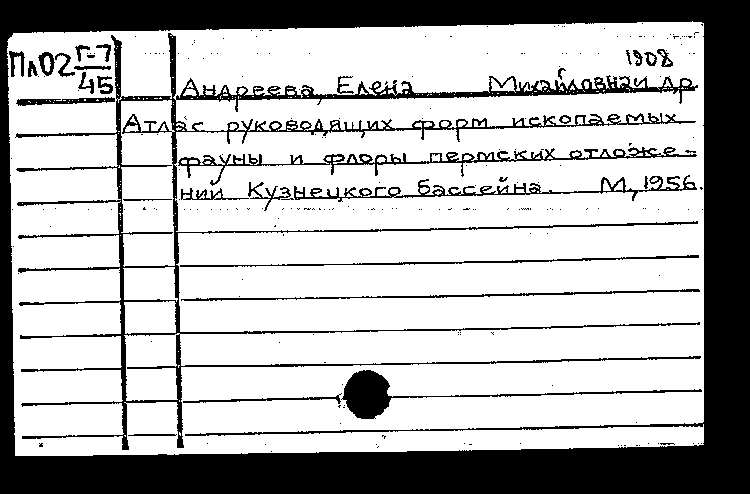 Пл02 Г-7
45
1908
Андреева, Елена Михайловна и др.
Атлас руководящих форм ископаемых
фауны и флоры пермских отложе-
ний Кузнецкого бассейна. М., 1956.